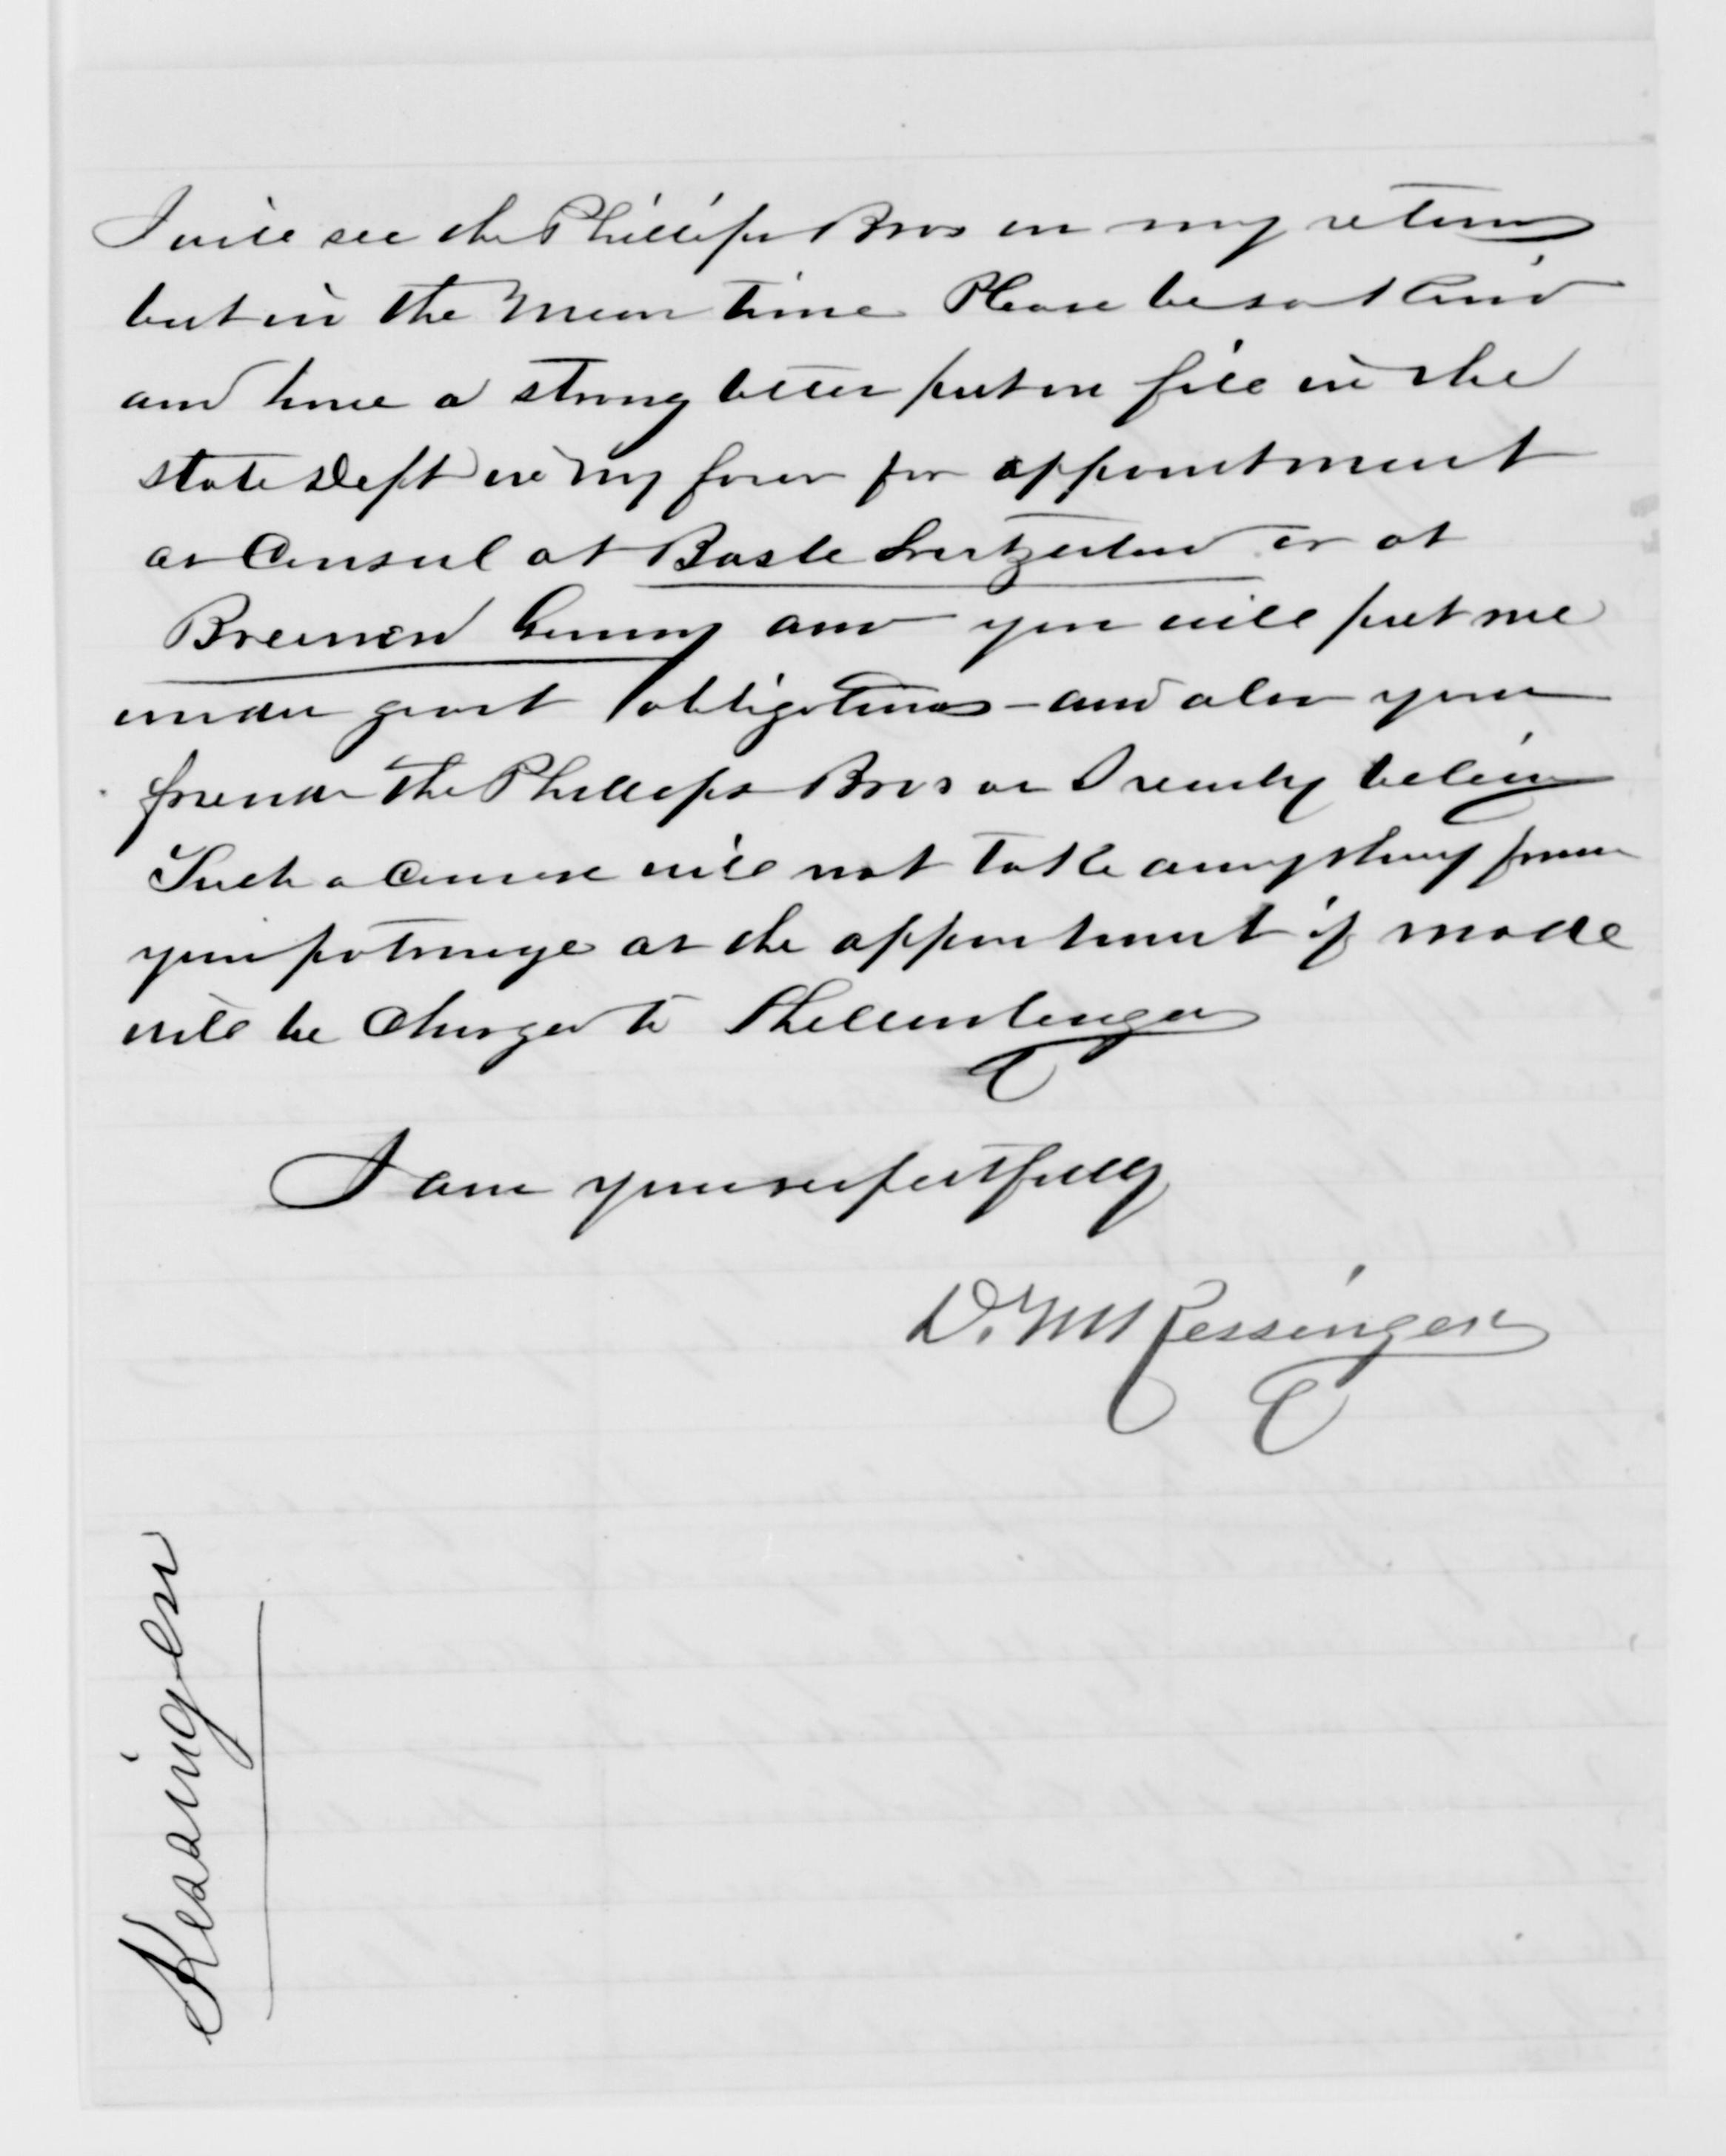 I will see the Phillips Bros on my return
but in the mean time Please be so kind
and have a strong letter put on file in the
state Dept in my favor for appointment
as Consul at Basle Switzerland or at
Bremen Germy and you will put me
under great obligations - and also your
friends the Phillips Bros as I really believe
Such a course will not take anything from
your patronage as the appointment if made
will be charged to
I am yours respectfully
D. M Kessinger
Kessinger